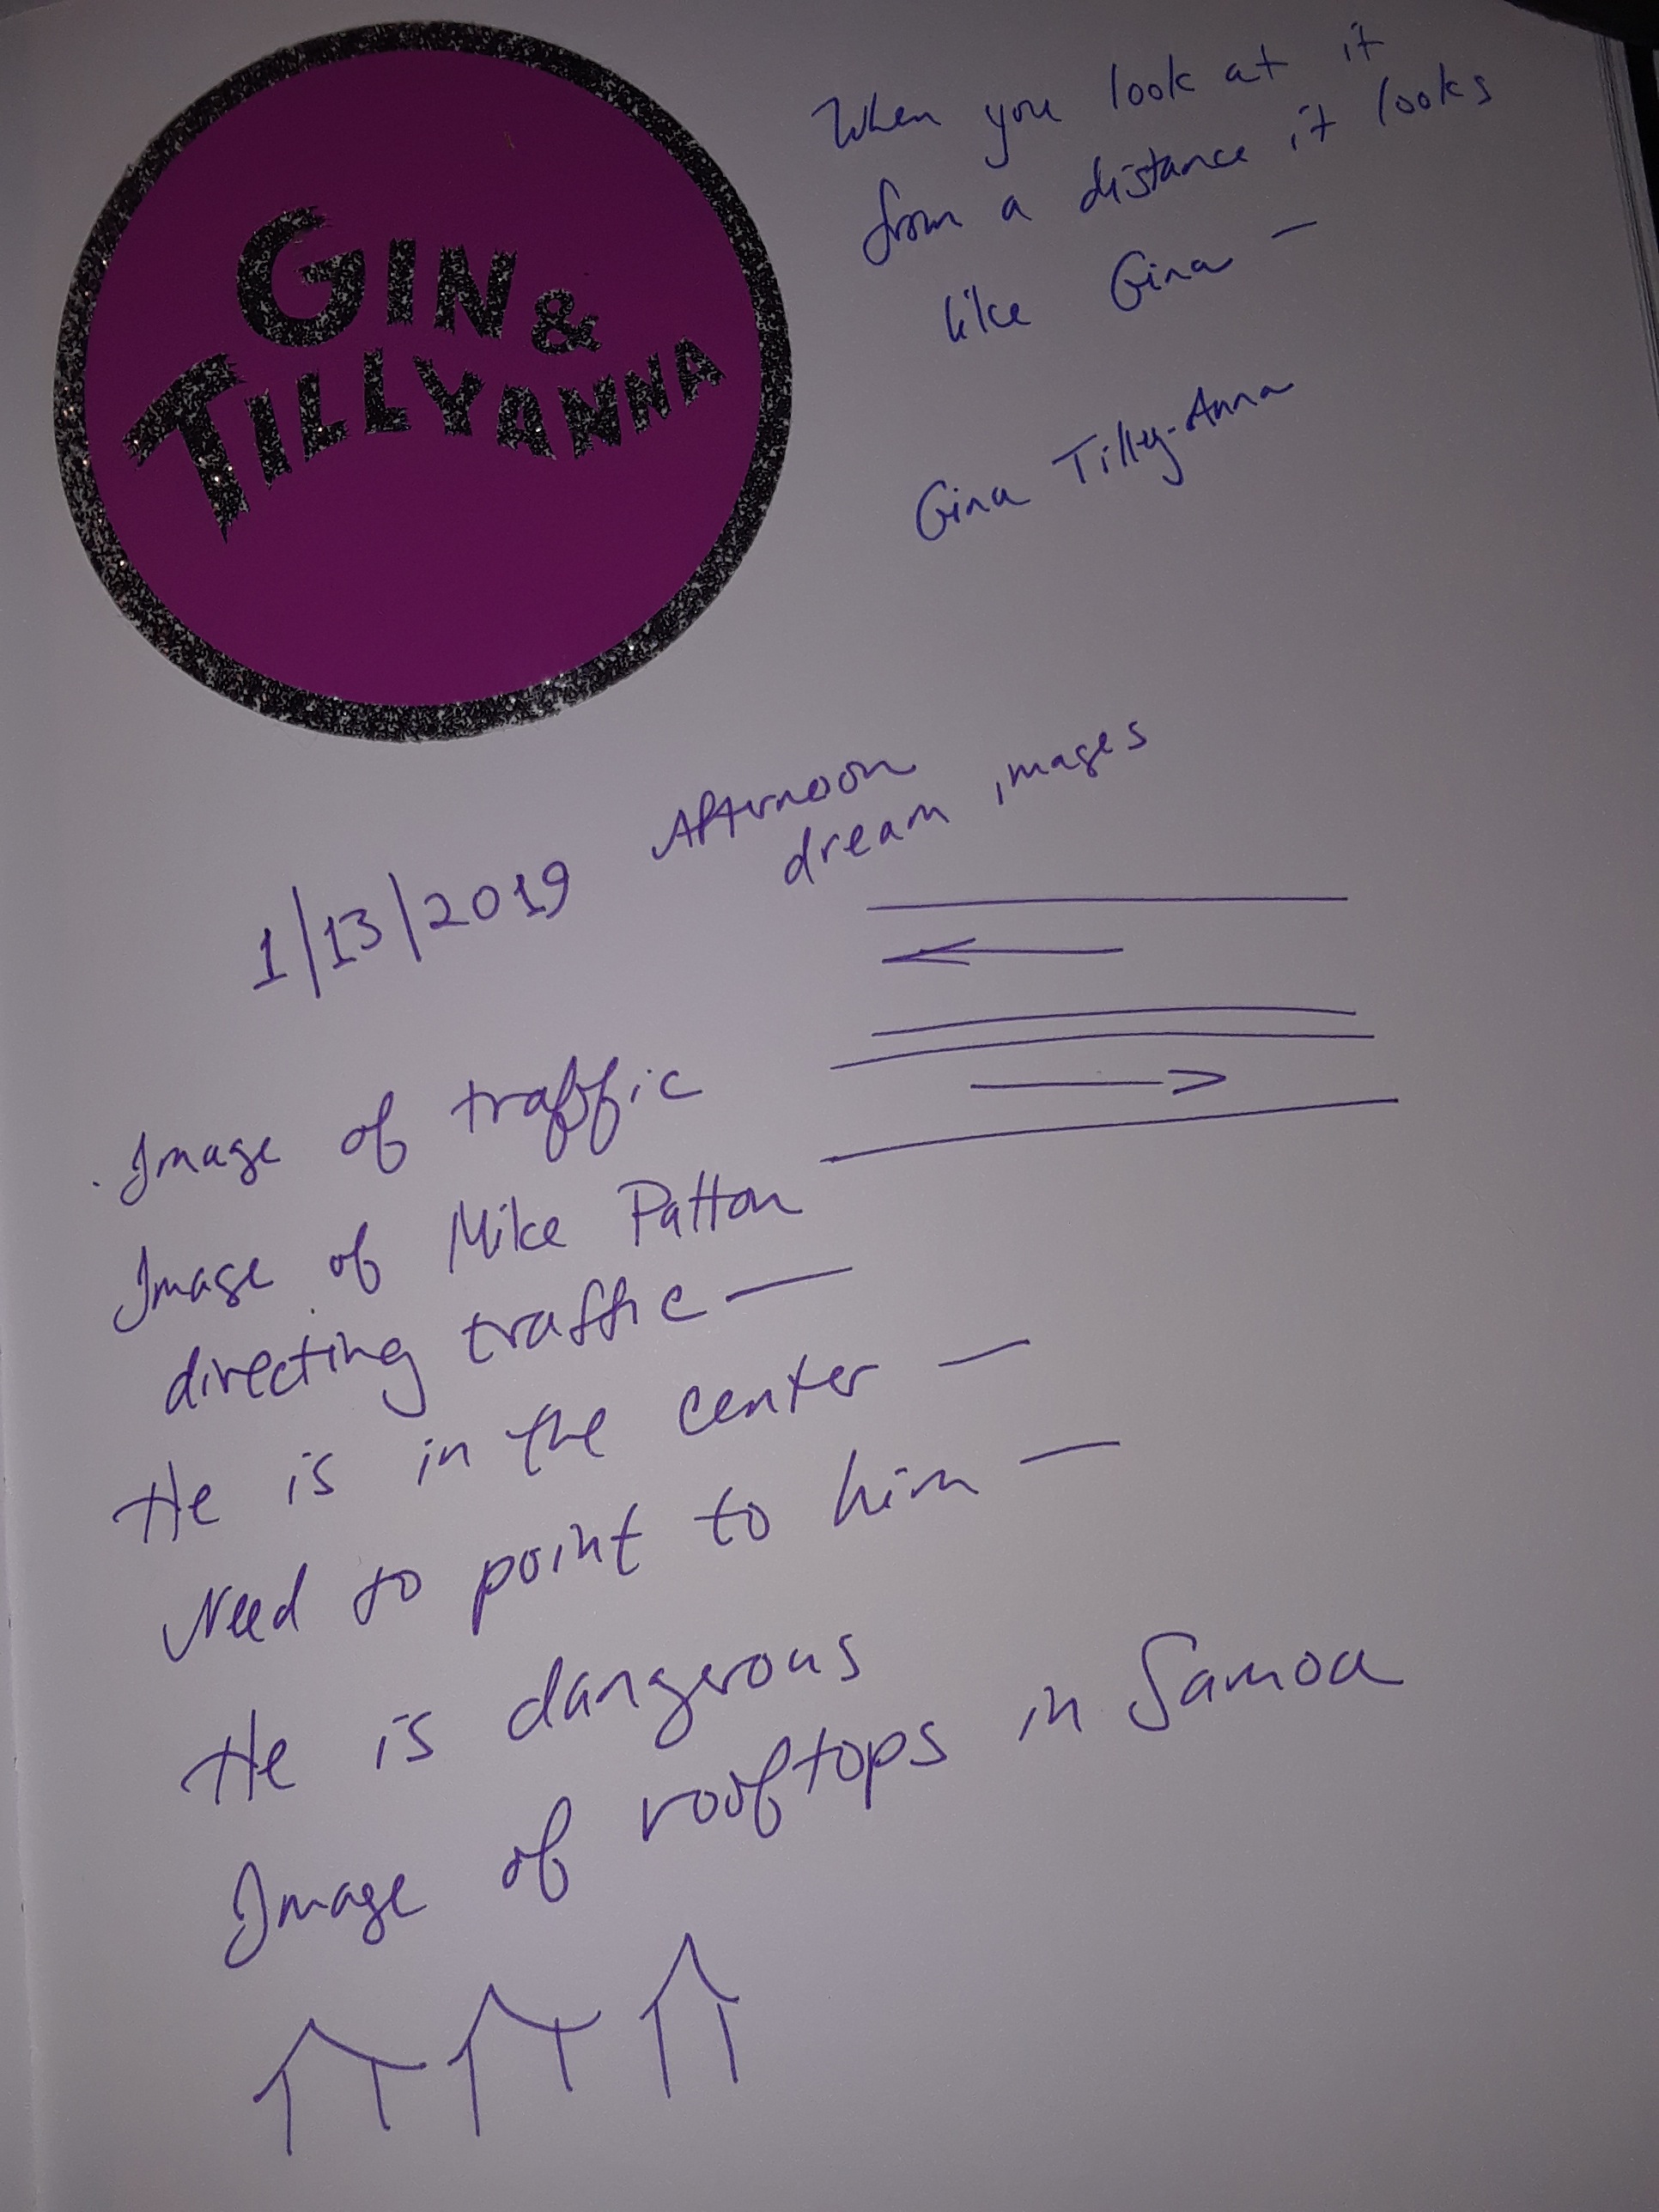 GIN &
TILLYANNA
When you look at it
from a distance it looks
like Gina —
Gina Tilly-Anna
1/13/2019 Afternoon
dream images
Image of traffic
Image of Mike Patton
directing traffic —
He is in the center —
Need to point to him —
He is dangerous
Image of rooftops in Samoa